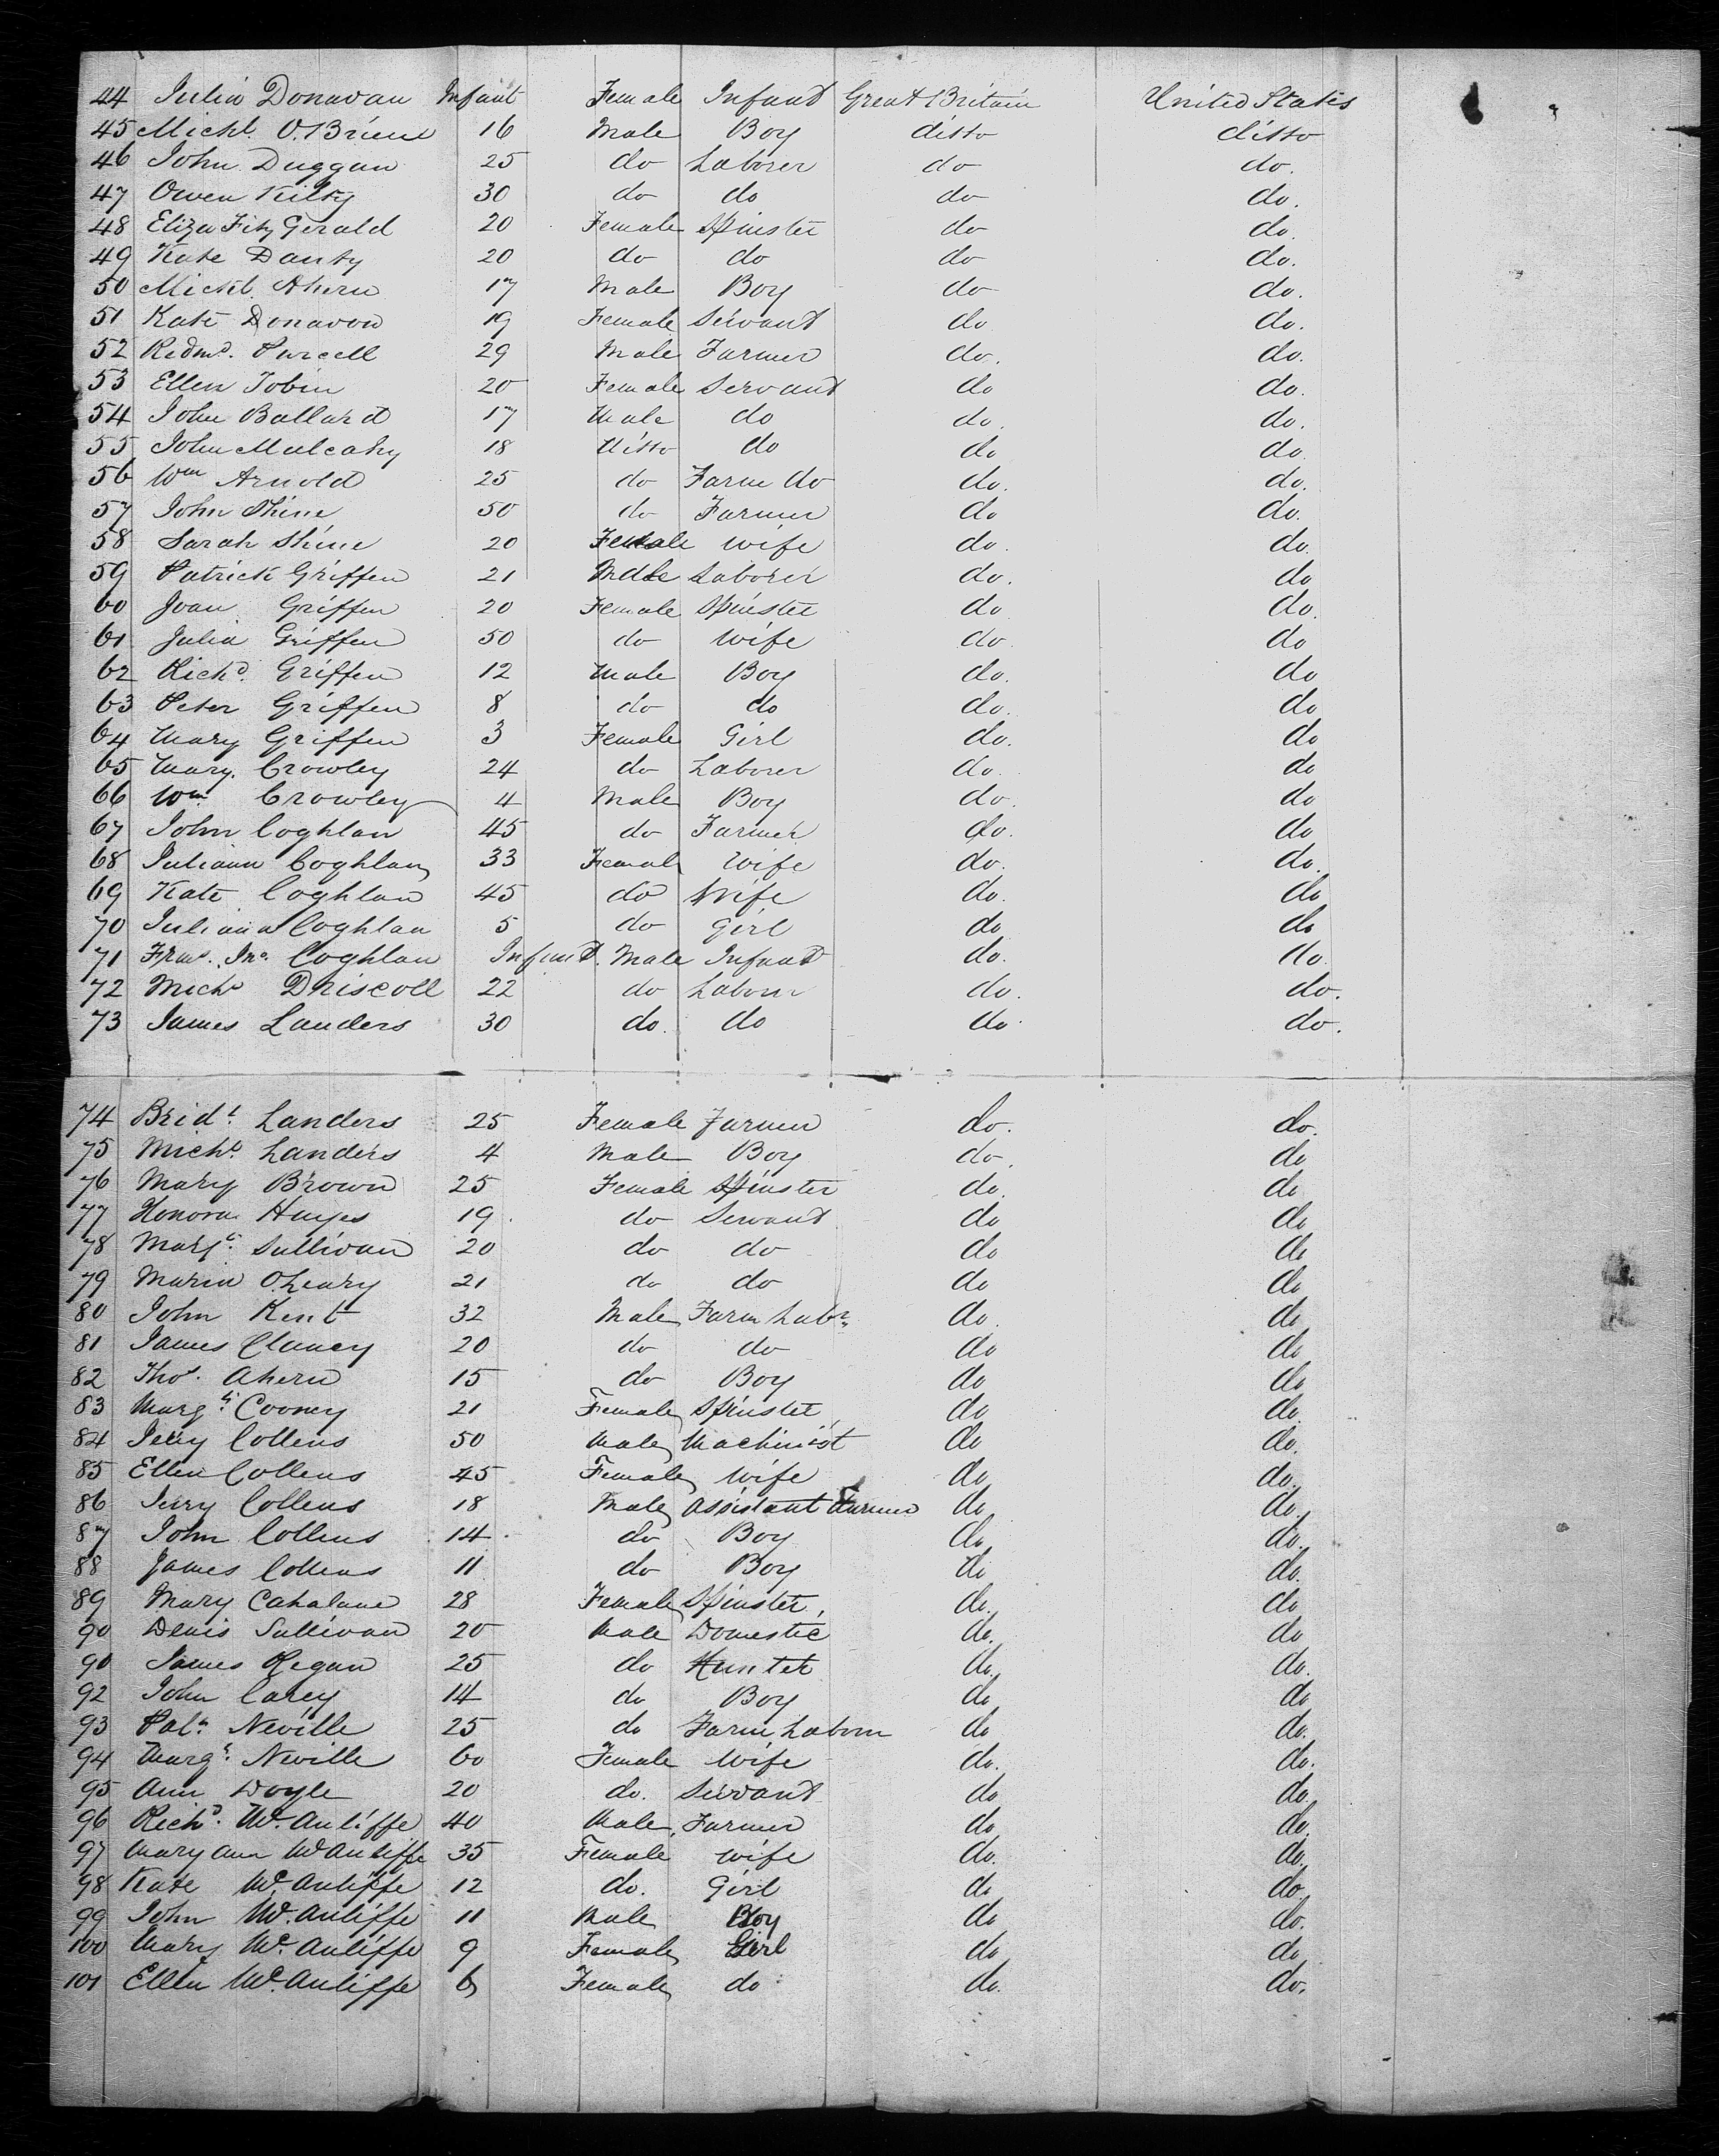 44 Julia Donovan Infant Female Infant Great Britain United States
45 Michl. O.Brien 16 Male Boy ditto ditto
46 John Duggan 25 do Laborer do do.
47 Owen 30 do do do do.
48 Eliza Fitz Gerald 20 Female Spinster do do.
49 Kate Danty 20 do do do do.
50 Michl. Ahern 17 Male Boy do do.
51 Kate Donavon 19 Female Servant do do.
52 Redmd. Purcell 29 Male Farmer do. do.
53 Ellen Tobin 20 Female Servant do do.
54 John Ballard 17 Male do do. do.
55 John Mulcahy 18 Ditto do do do.
56 Wm Arnold 25 do Farm do do. do.
57 John Shine 50 do Farmer do do.
58 Sarah Shine 20 Female Wife do. do.
59 Patrick Griffen 21 Male Laborer do. do
60 Joan Griffen 20 Female Spinster do do.
61 Julia Griffen 50 do Wife do. do
62 Richd. Griffen 12 Male Boy do. do
63 Peter Griffen 8 do do do. do
64 Mary Griffen 3 Female Girl do. do
65 Mary. Crowley 24 do Laborer do. do
66 Wm. Crowley 4 Male Boy do. do
67 John Coghlan 45 do Farmer do. do
68 Juliann Coghlan 33 Female Wife do. do.
69 Kate Coghlan 45 do Wife do. do
70 Juliana Coghlan 5 do Girl do do
71 Frans. Jno. Coghlan Infant. Male Infant do. do.
72 Michl Driscoll 22 do Laborer do. do.
73 James Landers 30 do. do do. do.
74 Bridt. Landers 25 Female Farmer do. do.
75 Michl. Landers 4 Male Boy do. do
76 Mary Brown 25 Female Spinster do. do
77 Honora Hayes 19. do Servant do do
78 Margt. Sullivan 20 do do do do
79 Maria O.Leary 21 do do do do
80 John Kent 32 Male Farm Labr. do. do
81 James Clancy 20 do do do do
82 Thos. Ahern 15 do Boy do do
83 Margt. Cooney 21 Female Spinster do do.
84 Jerry Collens 50 Male Machinist do do.
85 Ellen Collens 45 Female Wife do do.
86 Jerry Collens 18 Male Assistant Farmer do do.
87 John Collens 14. do Boy do do.
88 James Collens 11 do Boy do do.
89 Mary Cahalane 28 Female Spinster, do. do
90 Denis Sullivan 20 Male Domestic do. do
90 James Regan 25 do Hunter do. do.
92 John Carey 14 do Boy do do
93 Patk. Neville 25 do Farm Laborer do do.
94 Margt. Neville 60 Female Wife do. do.
95 Ann Doyle 20 do. Servant do do.
96 Richd. Mc. Auliffe 40 Male Farmer do do.
97 Mary Ann McAuliffe 35 Female Wife do. do.
98 Kate Mc. Auliffe 12 do. Girl do do.
99 John Mc. Auliffe 11 Male Boy do do.
100 Mary Mc. Auliffe 9 Female Girl do do
101 Ellen Mc. Auliffe 6 Female do do. do.